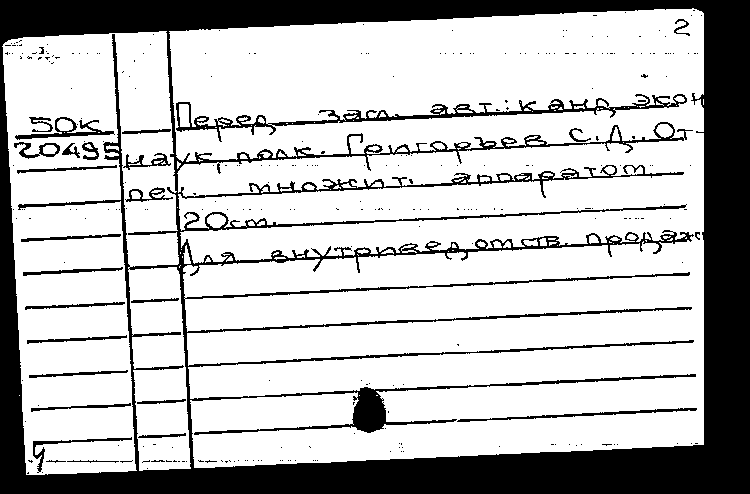 2
50К Перед загл. авт.: канд. экон
20495 наук, полк. Григорьев С.Д. От-
печ. множит. аппаратом.
20 см.
Для внутриведомств. продаж
ч